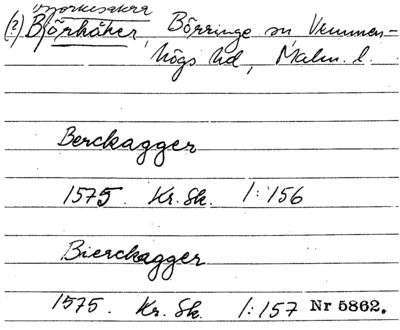 Björkesåkra
(?) Björkåker, Börringe sn, Vemmen-
högs hd, Malm. l.
Berckagger
1575. Kr. Sk. 1:156
Bierckagger
1575. Kr. Sk. 1:157 Nr 5862.